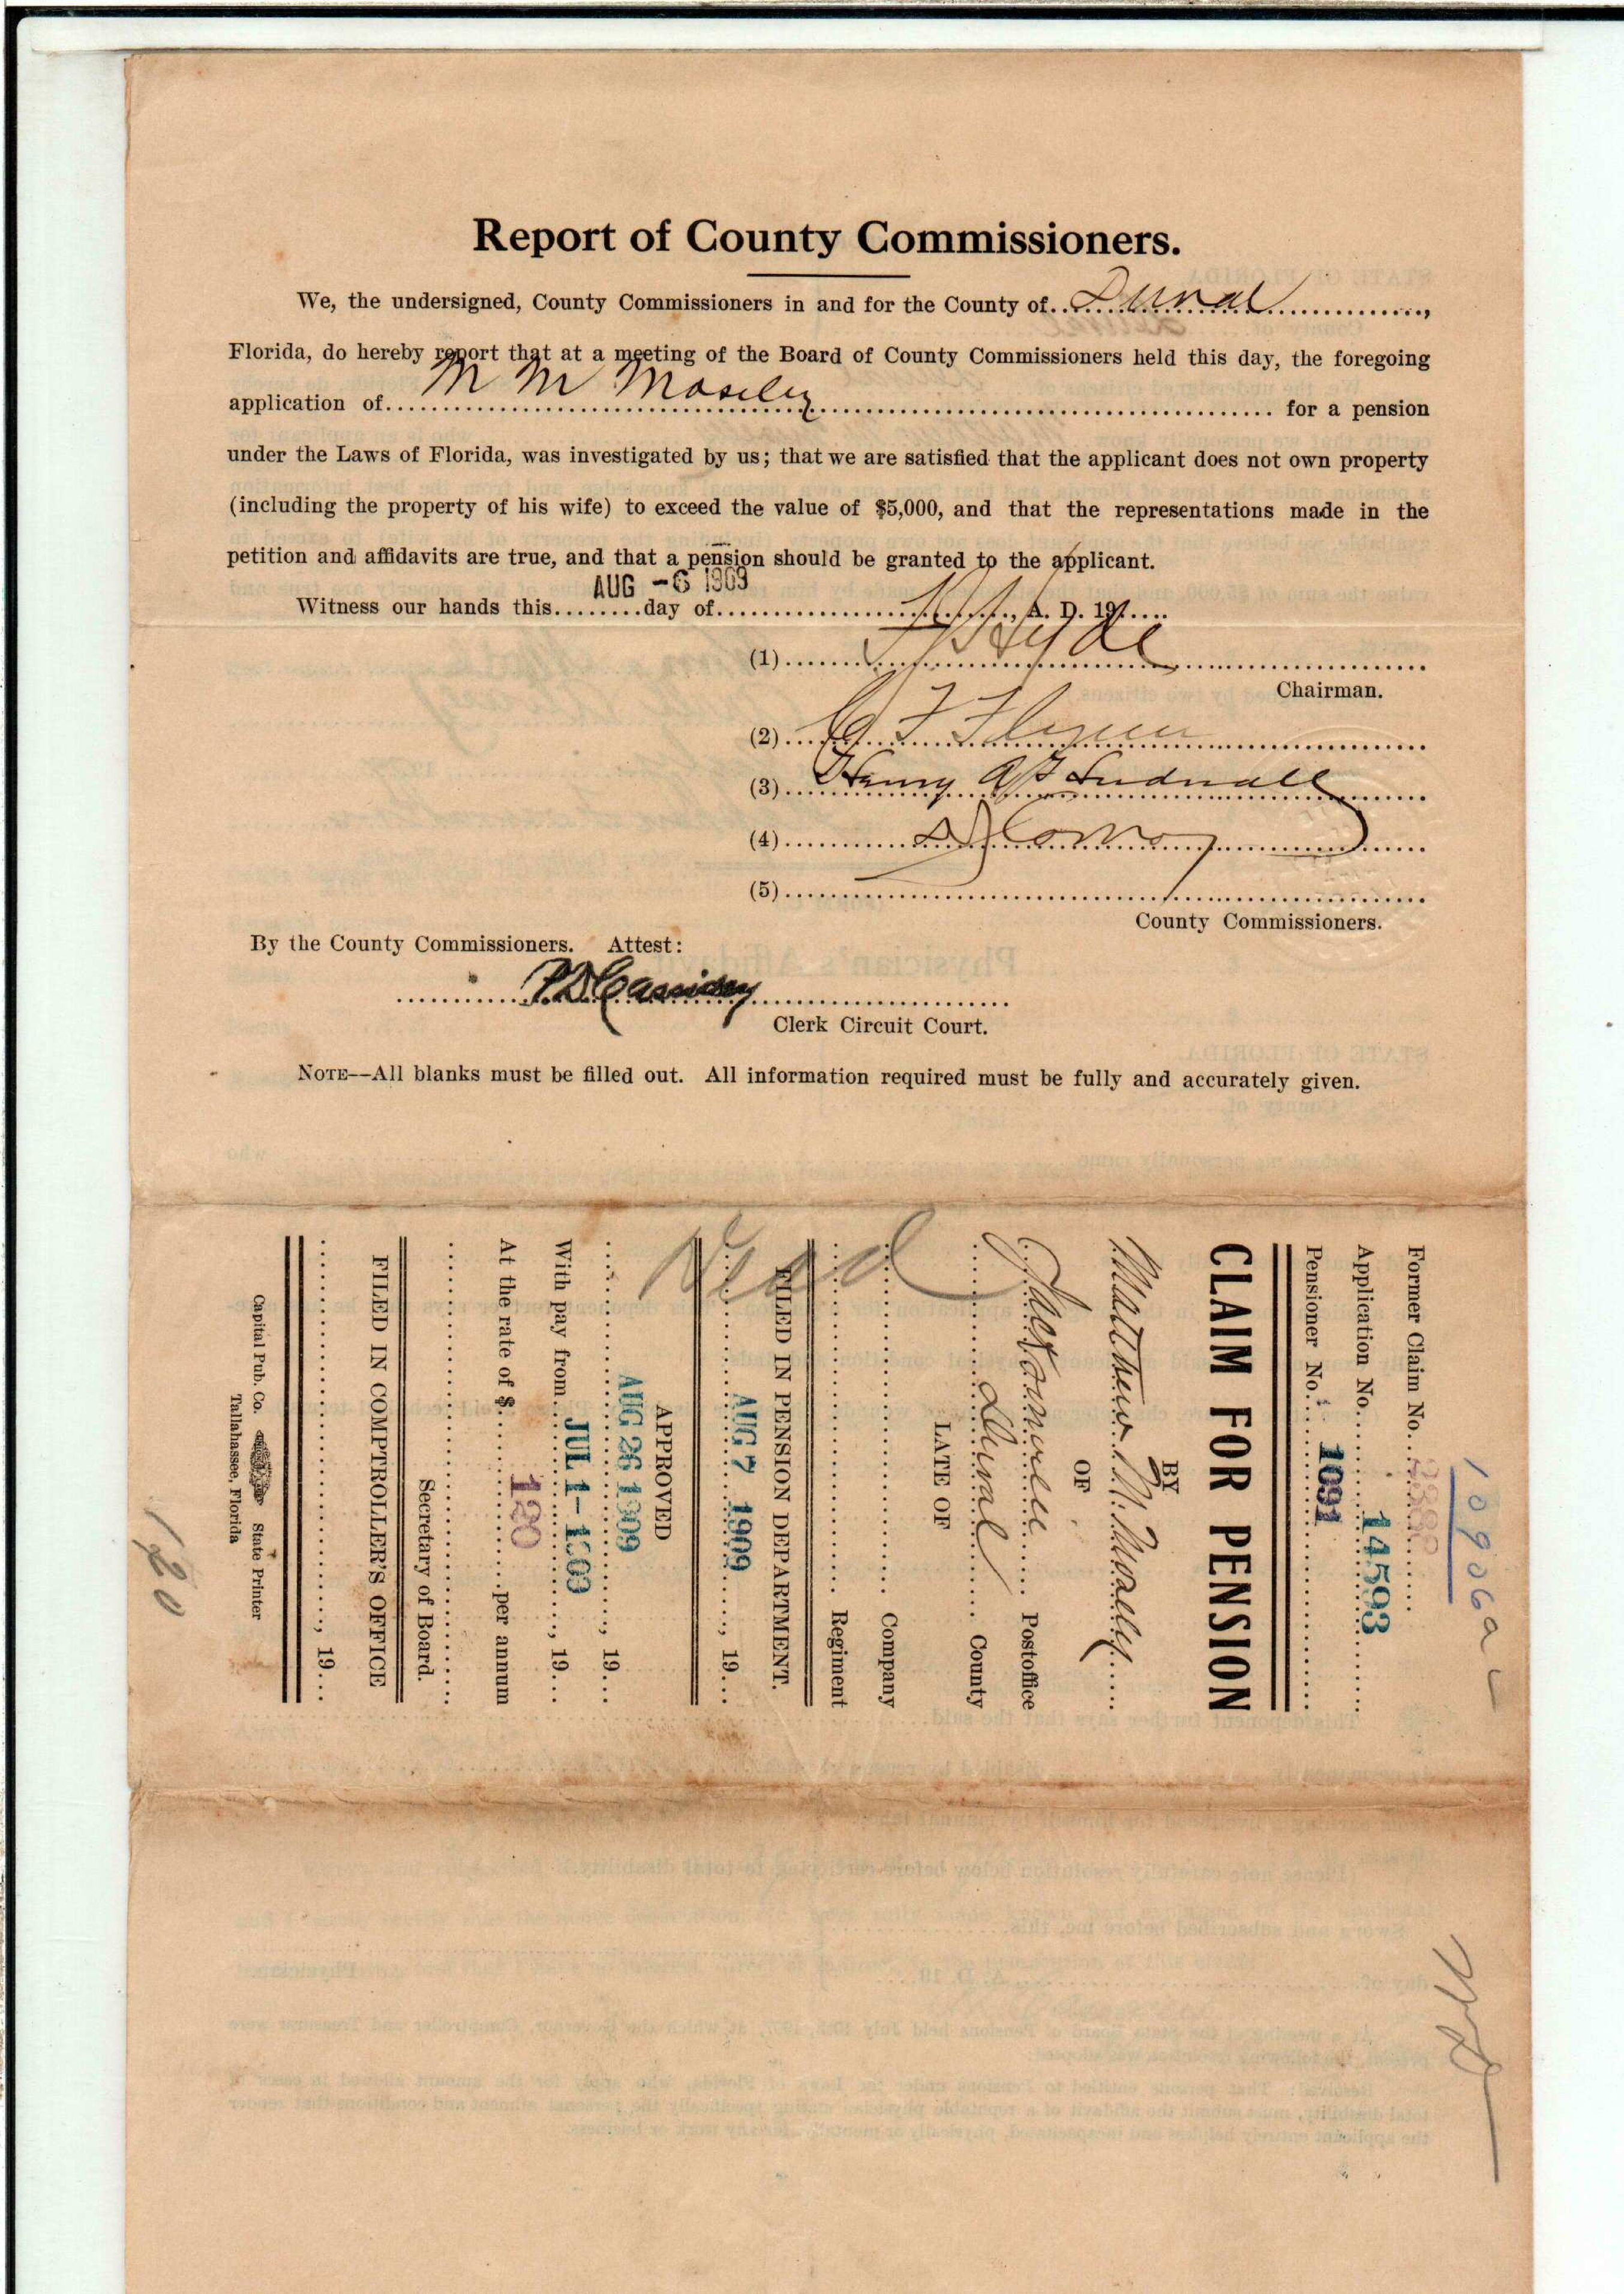 Report of County Commissioners.
We, the undersigned, County Commissioners in and for the County of Duval,
Florida, do hereby report that at a meeting of the Board of County Commissioners held this day, the foregoing
application of M M Mosely for a pension
under the Laws of Florida, was investigated by us; that we are satisfied that the applicant does not own property
(including the property of his wife) to exceed the value of $5,000, and that the representations made in the
petition and affidavits are true, and that a pension should be granted to the applicant.
AUG -6 1909
Witness our hands this........day of...................., A. D. 19.....
(1) Hyde
Chairman.
(2) Flynn
(3) Henry
(4)
(5)
County Commissioners.
By the County Commissioners. Attest:
P D Cassidey
Clerk Circuit Court.
NOTE--All blanks must be filled out. All information required must be fully and accurately given.
109069
Former Claim No.
Application No. 14593
Pensioner No. 1091
CLAIM FOR PENSION
BY
Matthew M. Mosely
OF
Jacksonville Postoffice
Duval County
LATE OF
Company
Regiment
Dead
FILED IN PENSION DEPARTMENT.
AUG 7 1909, 19...
APPROVED
AUG 26 1909, 19...
With pay from JUL 1- 1909, 19...
At the rate of $ 120 per annum
Secretary of Board.
FILED IN COMPTROLLER'S OFFICE
, 19...
Capital Pub. Co. State Printer
Tallahassee, Florida
120